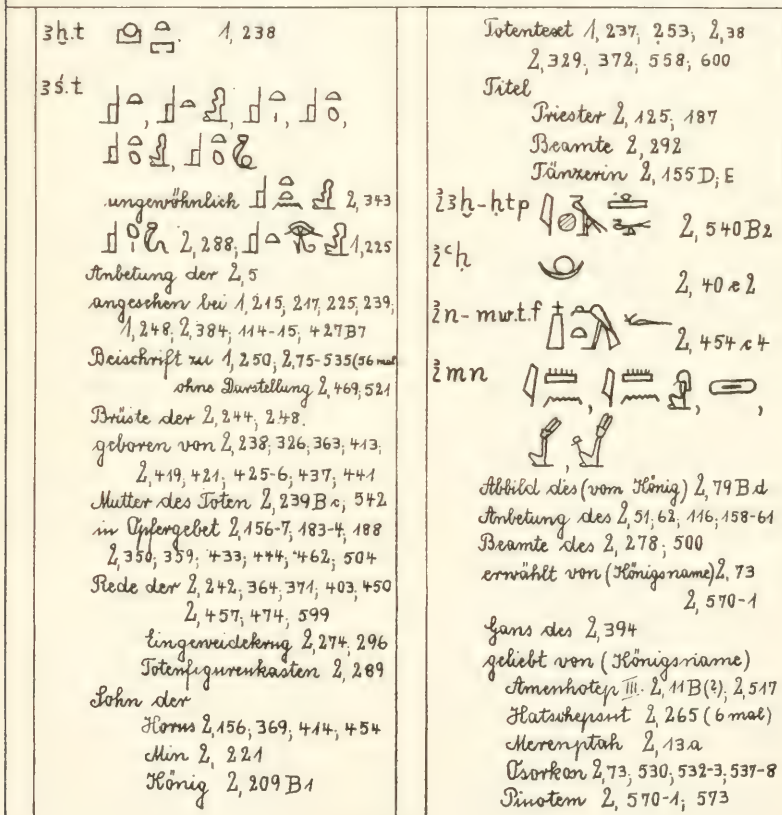 ȝḫ.t 1, 238
ȝś.t
ungewöhnlich 2, 343
2, 288; 1, 225
Anbetung der 2, 5
angesehen bei 1, 215; 217; 225; 239;
1, 248; 2, 384; 114-15; 427B7
Beischrift zu 1, 250; 2, 75-535 (56 mal
ohne Darstellung 2, 469; 521
Brüste der 2, 244; 248.
geboren von 2, 238; 326; 363; 413;
2, 419; 421; 425-6; 437; 441
Mutter des Toten 2, 239Bc; 542
in Opfergebet 2, 156-7; 183-4; 188
2, 350; 359; 433; 444; 462; 504
Rede der 2, 242; 364; 371; 403; 450
2, 457; 474; 599
Eingeweidekrug 2, 274; 296
Totenfigurenkasten 2, 289
Sohn der
Horus 2, 156; 369; 414; 454
Min 2, 221
König 2, 209B1
Totentext 1, 237; 253; 2, 38
2, 329; 372; 558; 600
Titel
Priester 2, 125; 187
Beamte 2, 292
Tänzerin 2, 155D; E
i̓ȝḫ-ḥtp 2, 540B2
i̓ꜥḥ 2, 40e2
i̓n-mwt.f 2, 454c4
i̓mn
Abbild des (vom König) 2, 79Bd
Anbetung des 2, 51; 62; 116; 158-61
Beamte des 2, 278; 500
erwählt von (Königsname) 2, 73
2, 570-1
Gans des 2, 394
geliebt von (Königsname)
Amenhotep III. 2, 11B(?); 2, 517
Hatschepsut 2, 265 (6 mal)
Merenptah 2, 13a
Osorkon 2, 73; 530; 532-3; 537-8
Pinotem 2, 570-1; 573